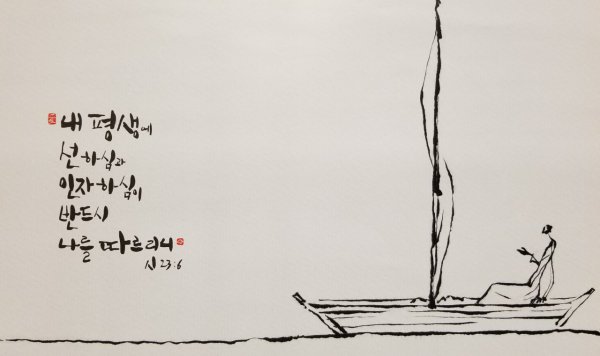 내 평생에
선하심과
인자하심이
반드시
나를 따르리니
시 23:6